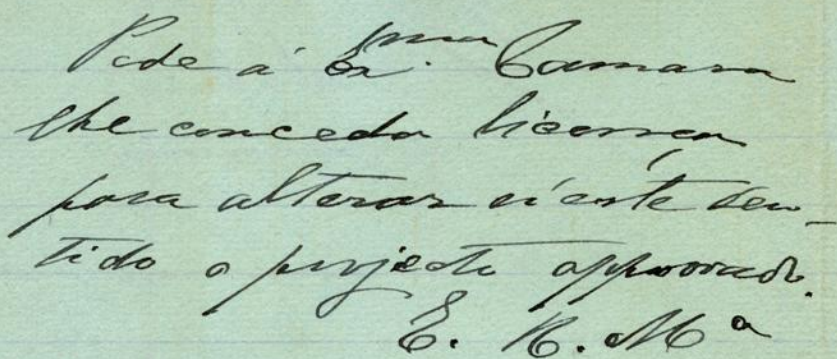 Pede á Ex.ma Camara
lhe conceda licença
para alterar n'este sen-
tido o projecto approvado.
E. R. M.ª